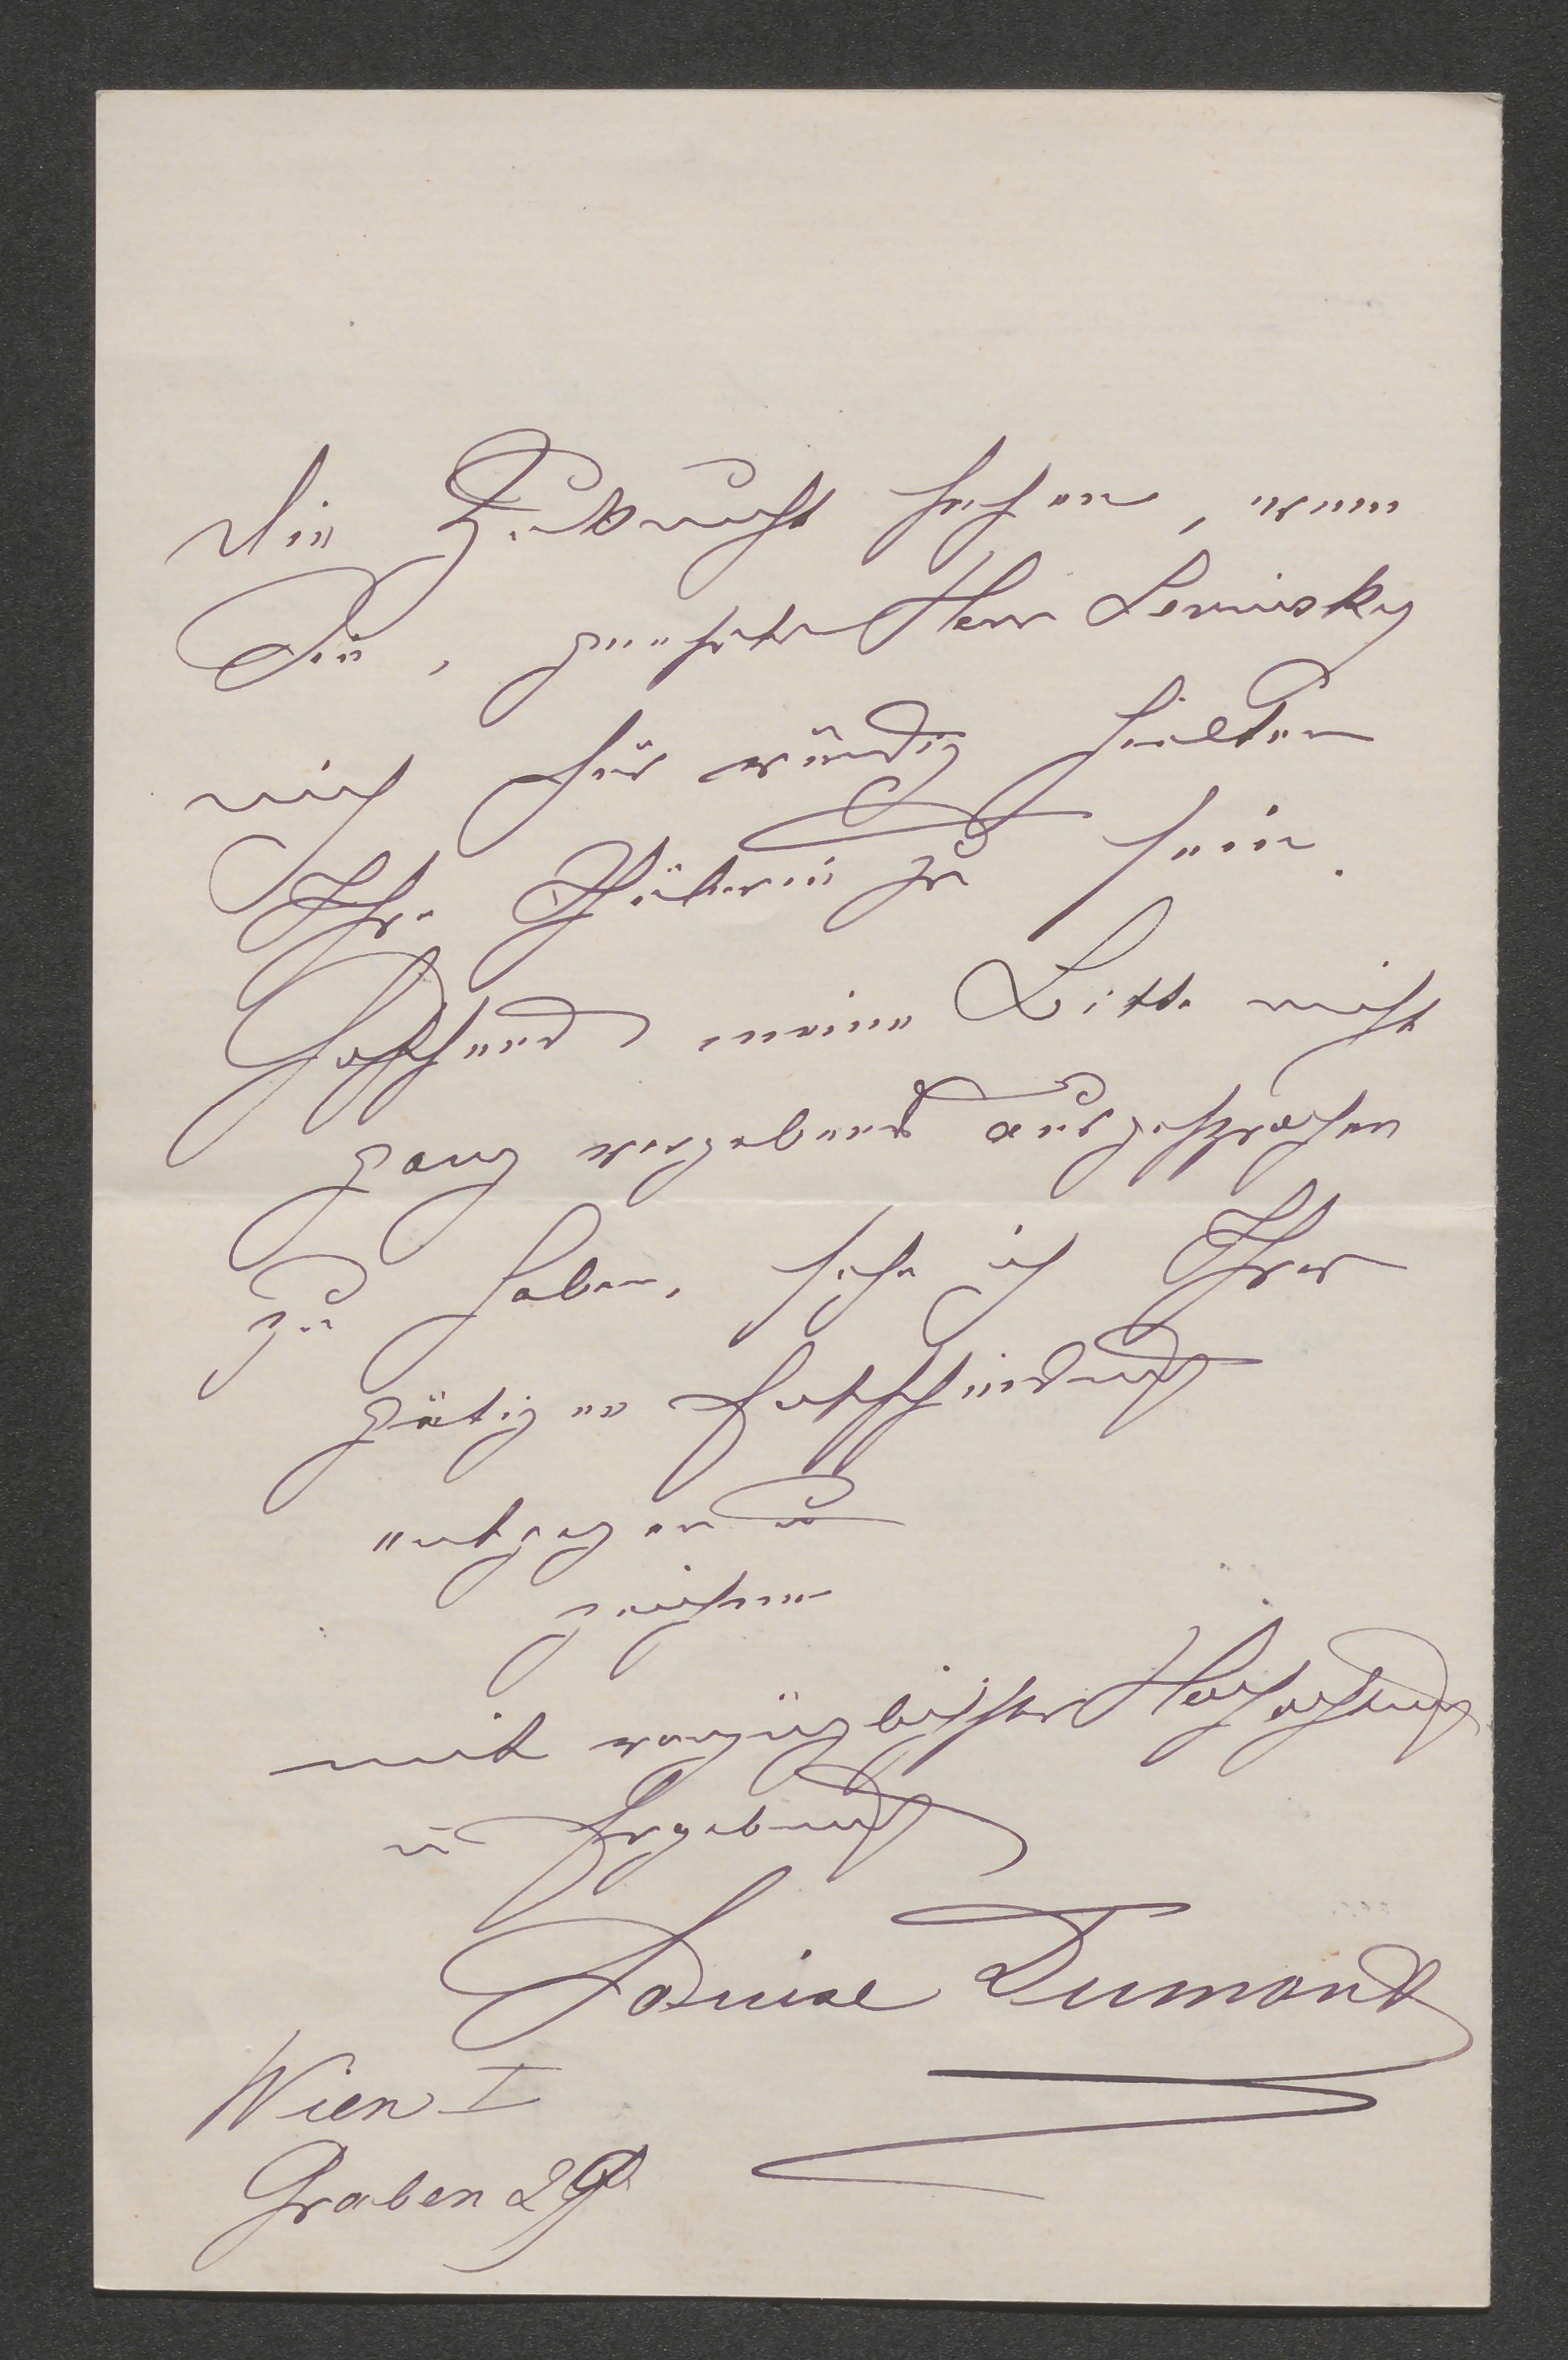 die Zukunft sehen, wenn
Sie, geehrter Herr Lewinsky
mich für würdig hielten
Ihre Schülerin zu sein.
Hoffend meine Bitte nicht
ganz vergebens ausgesprochen
zu haben, sehe ich Ihrer
gütigen Entscheidung
entgegen u
zeichne
mit vorzüglichster Hochachtung
u Ergebung
Louise Dumont
Wien I
Graben 29